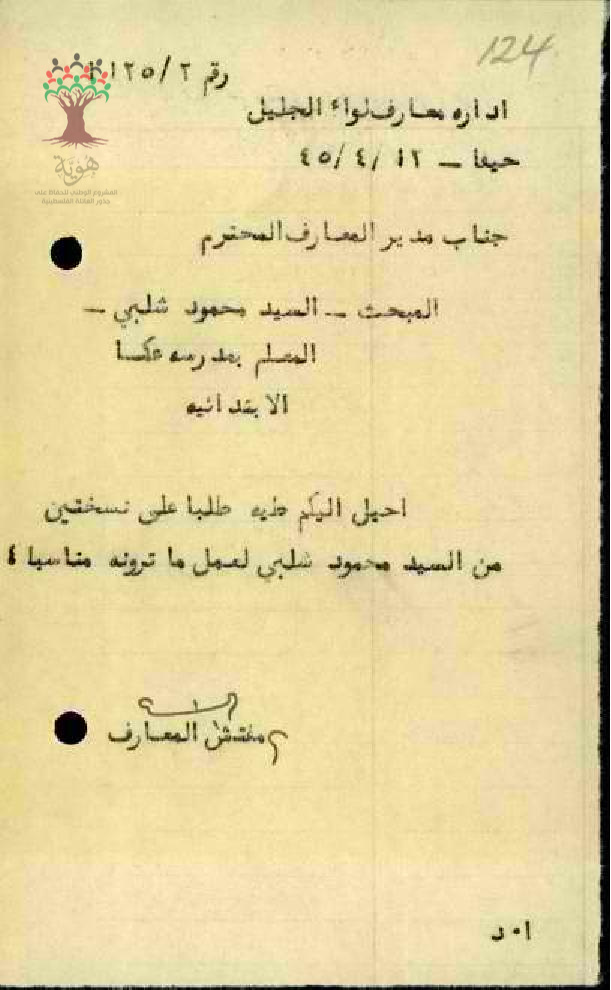 124
رقم ٢/١٢٥
اداره معارف لواء الجليل
حيفا — ١٢/٤/٤٥
جناب مدير المعارف المحترم
المبحث — السيد محمود شلبي —
المعلم بمدرسه عكا
الابتدائيه
احيل اليكم طيه طلبا على نسختين
من السيد محمود شلبي لعمل ما ترونه مناسبا ،
مفتش المعارف
ا٠د
هويّة
المشروع الوطني للحفاظ على
جذور العائلة الفلسطينية